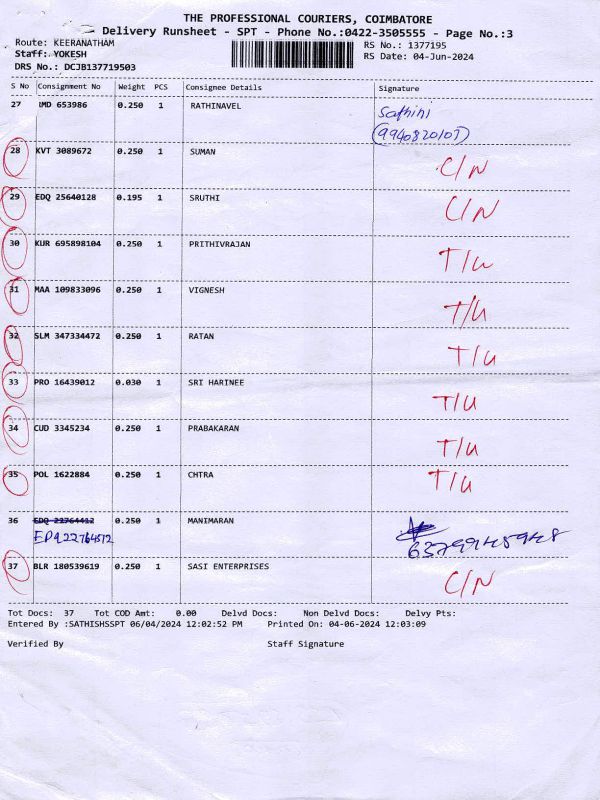 THE PROFESSIONAL COURIERS, COIMBATORE
Delivery Runsheet - SPT - Phone No.:0422-3505555 - Page No.:3
Route: KEERANATHAM RS No.: 1377195
Staff: YOKESH RS Date: 04-Jun-2024
DRS No.: DCJB137719503
S No Consignment No Weight PCS Consignee Details Signature
27 IMD 653986 0.250 1 RATHINAVEL
28 KVT 3089672 0.250 1 SUMAN C/N
29 EDQ 25640128 0.195 1 SRUTHI C/N
30 KUR 695898104 0.250 1 PRITHIVRAJAN T/U
31 MAA 109833096 0.250 1 VIGNESH T/U
32 SLM 347334472 0.250 1 RATAN T/U
33 PRO 16439012 0.030 1 SRI HARINEE T/U
34 CUD 3345234 0.250 1 PRABAKARAN T/U
35 POL 1622884 0.250 1 CHTRA T/U
36 EDQ 22764412 0.250 1 MANIMARAN
37 BLR 180539619 0.250 1 SASI ENTERPRISES C/N
Tot Docs: 37 Tot COD Amt: 0.00 Delvd Docs: Non Delvd Docs: Delvy Pts:
Entered By :SATHISHSSPT 06/04/2024 12:02:52 PM Printed On: 04-06-2024 12:03:09
Verified By Staff Signature